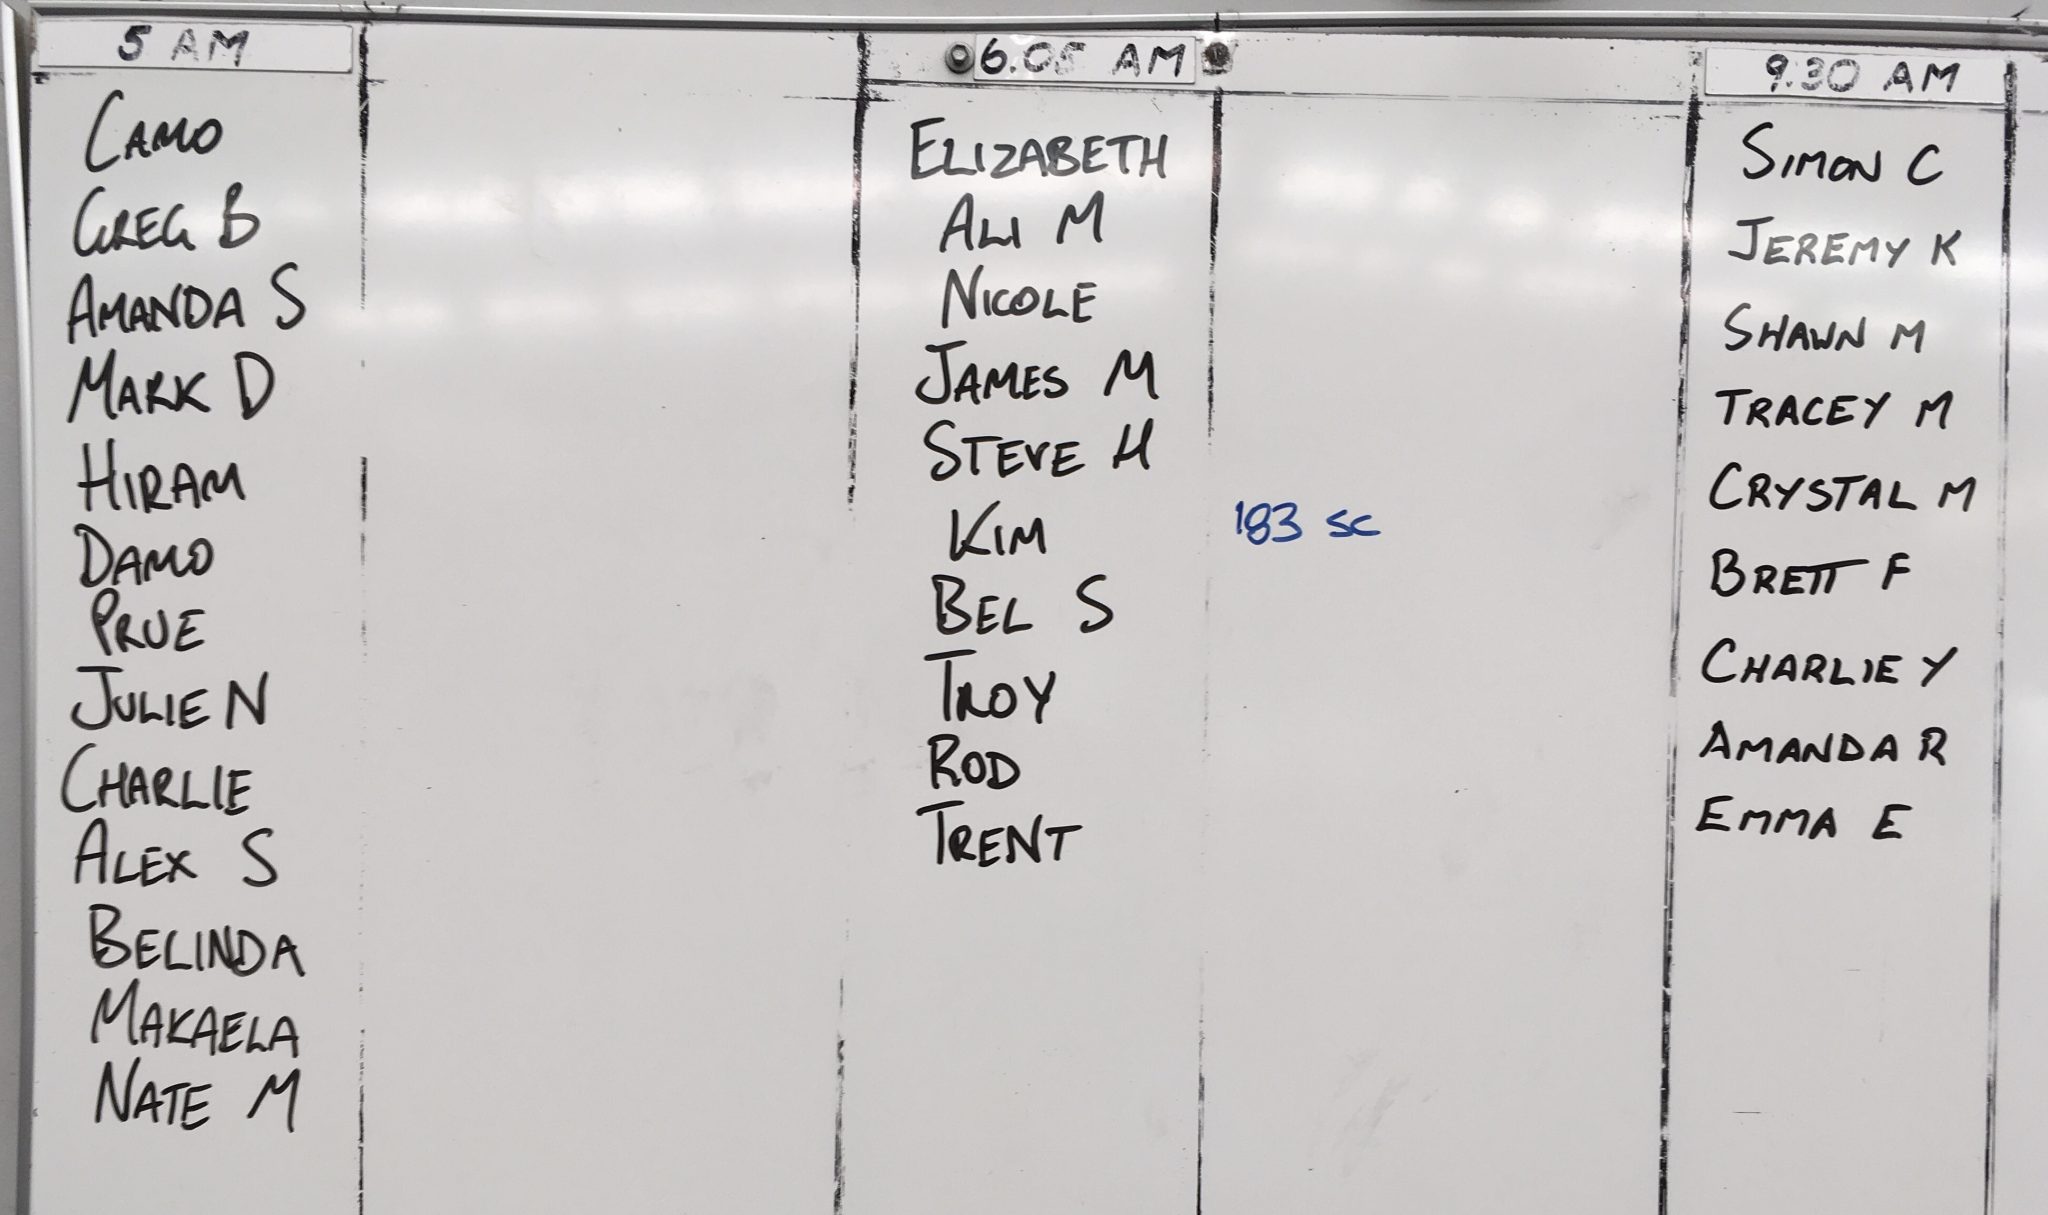 5 AM
CAMO
GREG B
AMANDA S
MARK D
HIRAM
DAMO
PRUE
JULIE N
CHARLIE
ALEX S
BELINDA
MAKAELA
NATE M
6.05 AM
ELIZABETH
ALI M
NICOLE
JAMES M
STEVE H
KIM 183 SC
BEL S
TROY
ROD
TRENT
9.30 AM
SIMON C
JEREMY K
SHAWN M
TRACEY M
CRYSTAL M
BRETT F
CHARLIE Y
AMANDA R
EMMA E